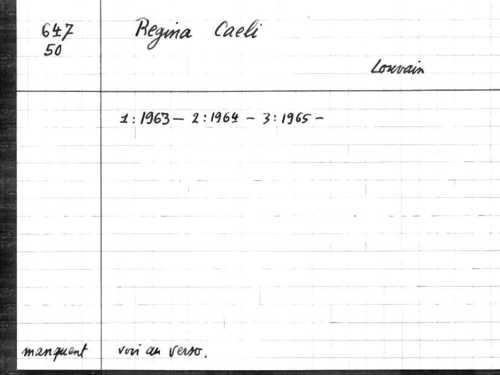 647 Regina Caeli
50
Louvain
1: 1963 — 2: 1964 — 3: 1965 —
manquent voir au verso.